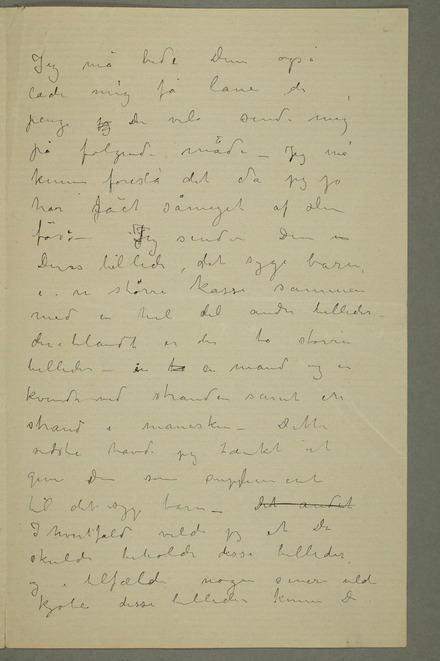 Jeg må bede Dem også
lade mig få låne de
penge jeg De vil sende mig
på følgende måde – Jeg må
kunne foreslå det da jeg jo
har fået såmeget af Dem
før – Jeg sender Dem
Deres billede, det syge barn,
i en større kasse sammen
med en hel del andre billeder –
deriblandt er der to større
billeder – en mand og en
kvinde ved stranden samt en
strand i måneskin – Dette
sidste havde jeg tænkt at
give Dem som supplement
til det syge barn – Det andet
I hvertfald vilde jeg at De
skulde beholde disse billeder,
og i tilfælde nogen senere vilde
kjøbe disse billeder kunne De